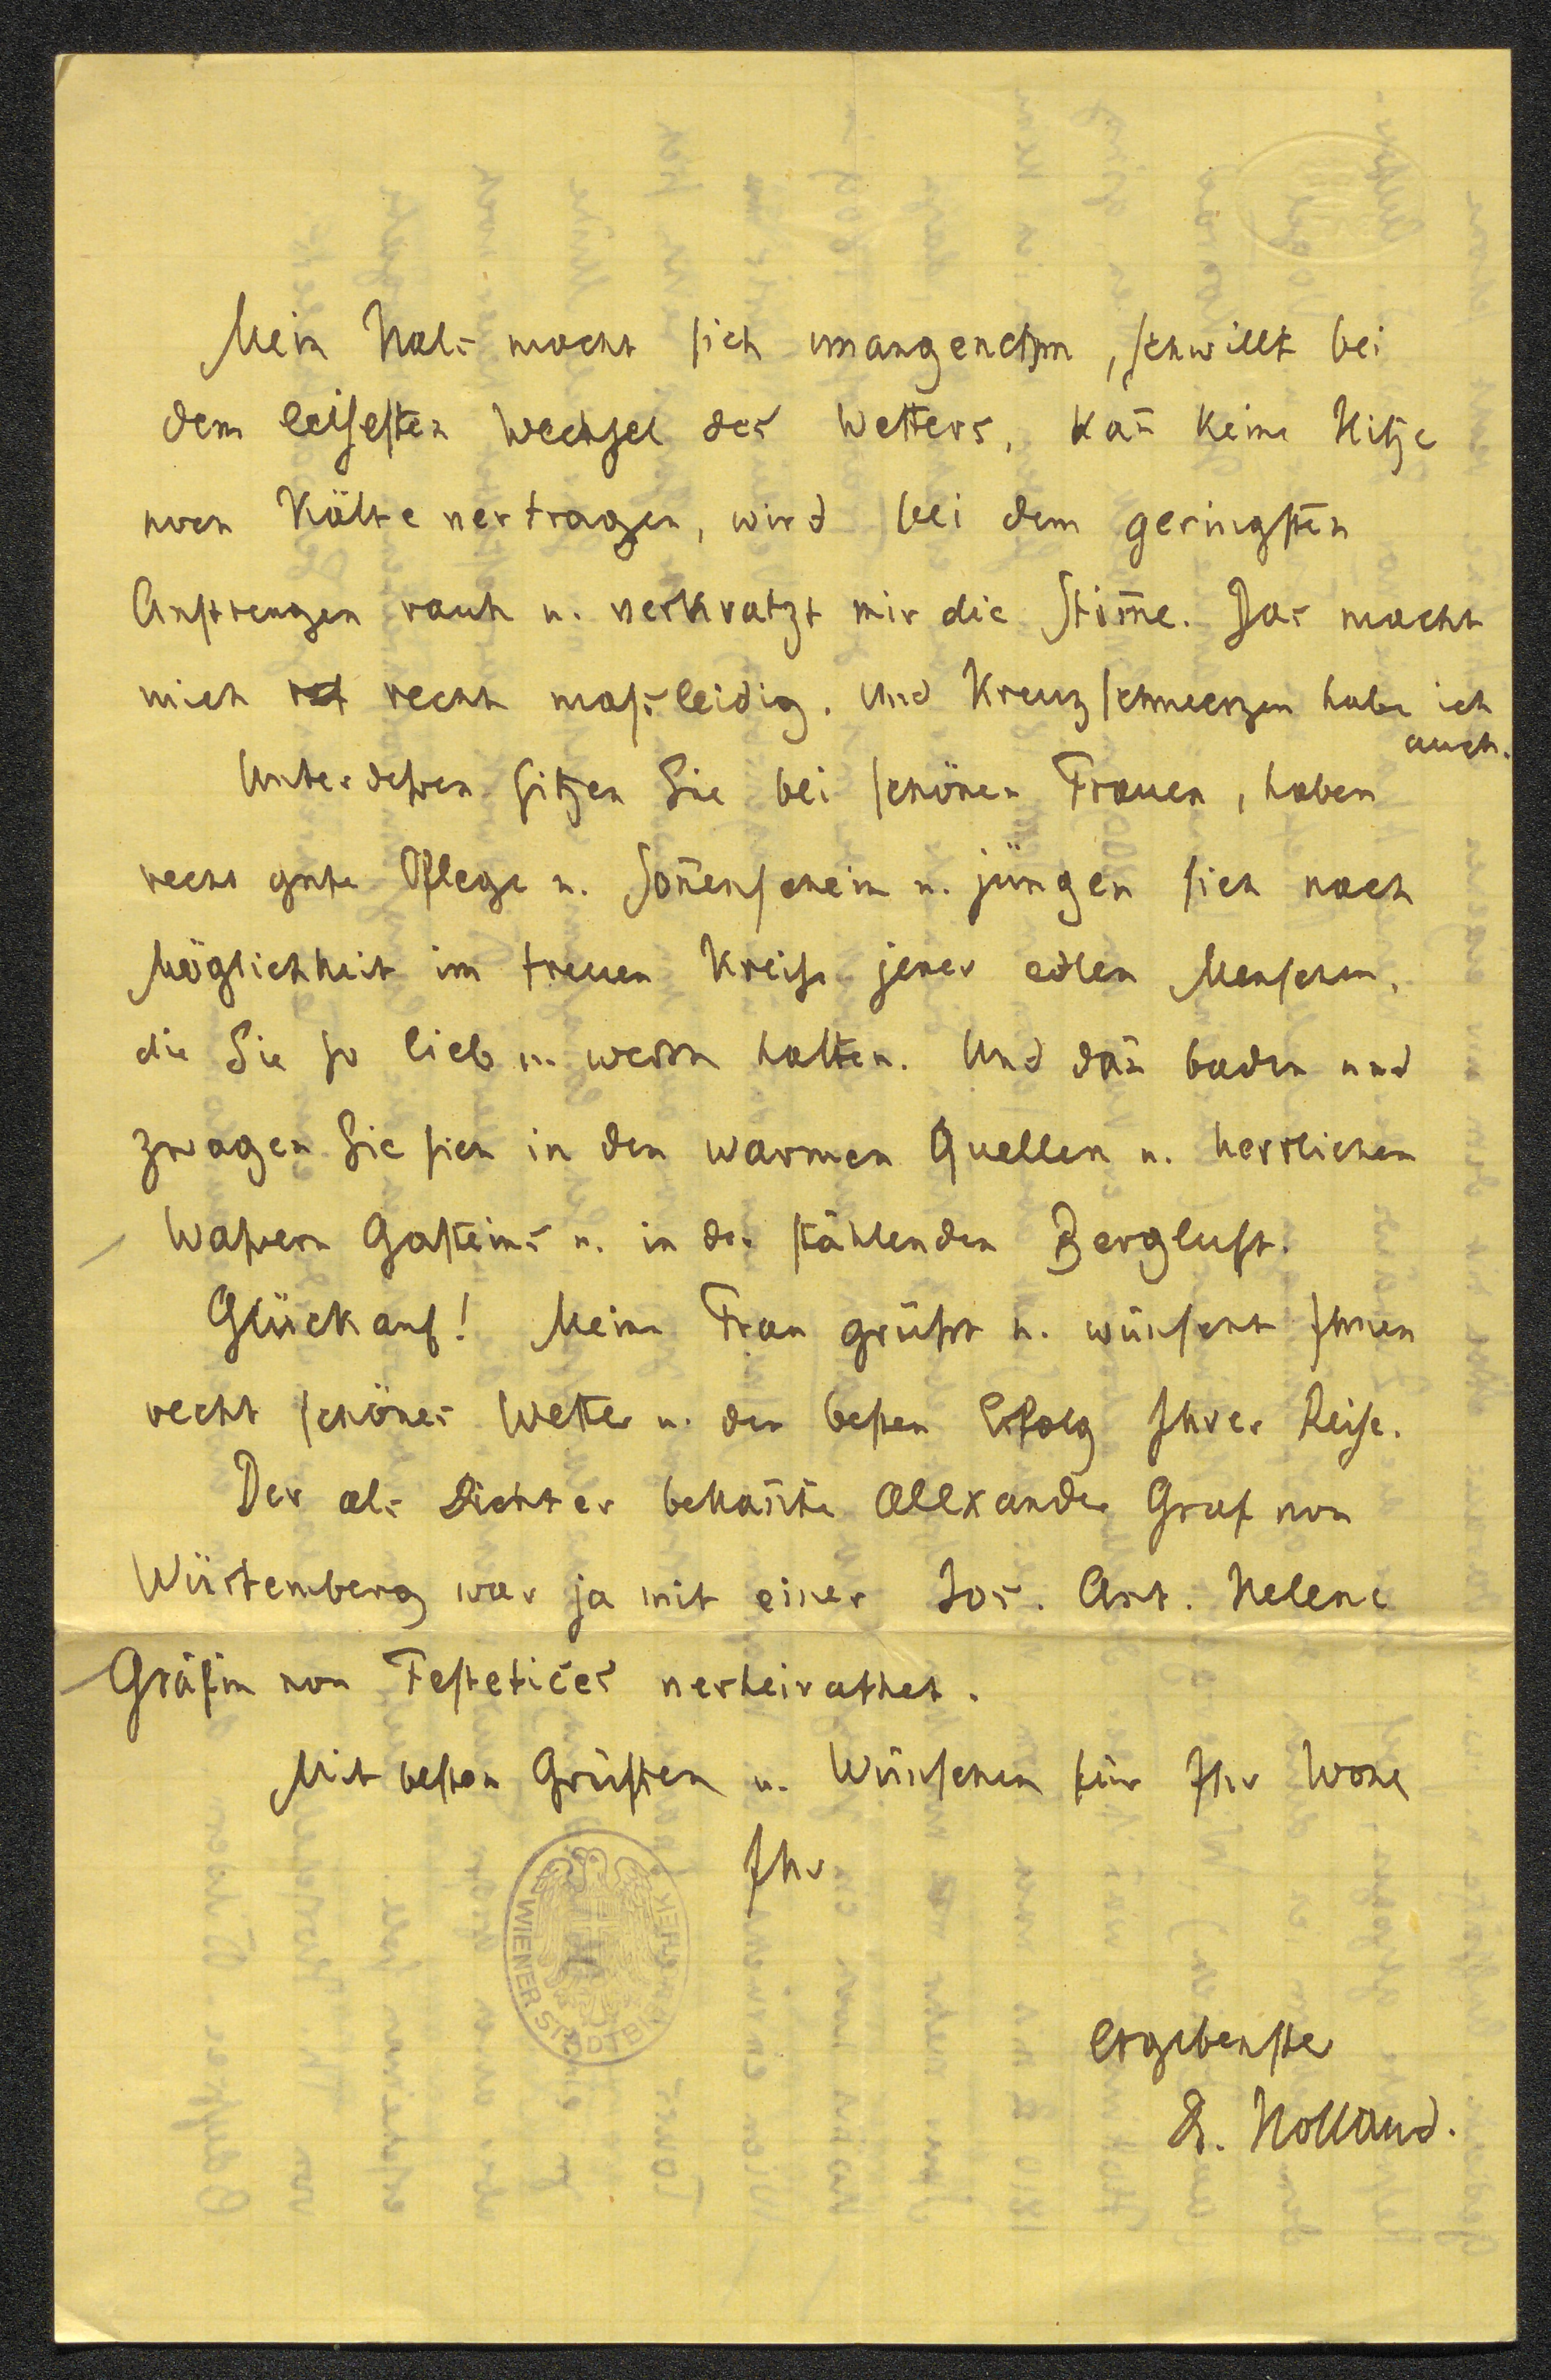 Mein Hals macht sich unangenehm, schwillt bei
dem leisesten Wechsel des Wetters, kan̄ keine Hitze
noch Kälte vertragen, wird bei dem geringsten
Anstrengen rauh u. verkratzt mir die Stim̄e. Das macht
mich recht massleidig. Und Kreuzschmerzen habe ich
auch.
Unterdessen sitzen Sie bei schönen Frauen, haben
recht gute Pflege u. Son̄enschein u. jüngen sich nach
Möglichkeit im treuen Kreise jener edlen Menschen,
die Sie so lieb u. werth halten. Und dan̄ baden und
zwagen Sie sich in den warmen Quellen u. herrlichen
Wassern Gasteins u. in der stählenden Bergluft.
Glückauf! Meine Frau grüsst u. wünscht Ihnen
recht schönes Wetter u. den besten Erfolg Ihrer Reise.
Der als Dichter bekan̄te Alexander Graf von
Würtemberg war ja mit einer Jos. Ant. Helene
Gräfin von Festetices verheirathet.
Mit besten Grüssen u. Wünschen für Ihr Wohl
Ihr
WIENER STADTBIBLIOTHEK
ergebenster
H. Holland.